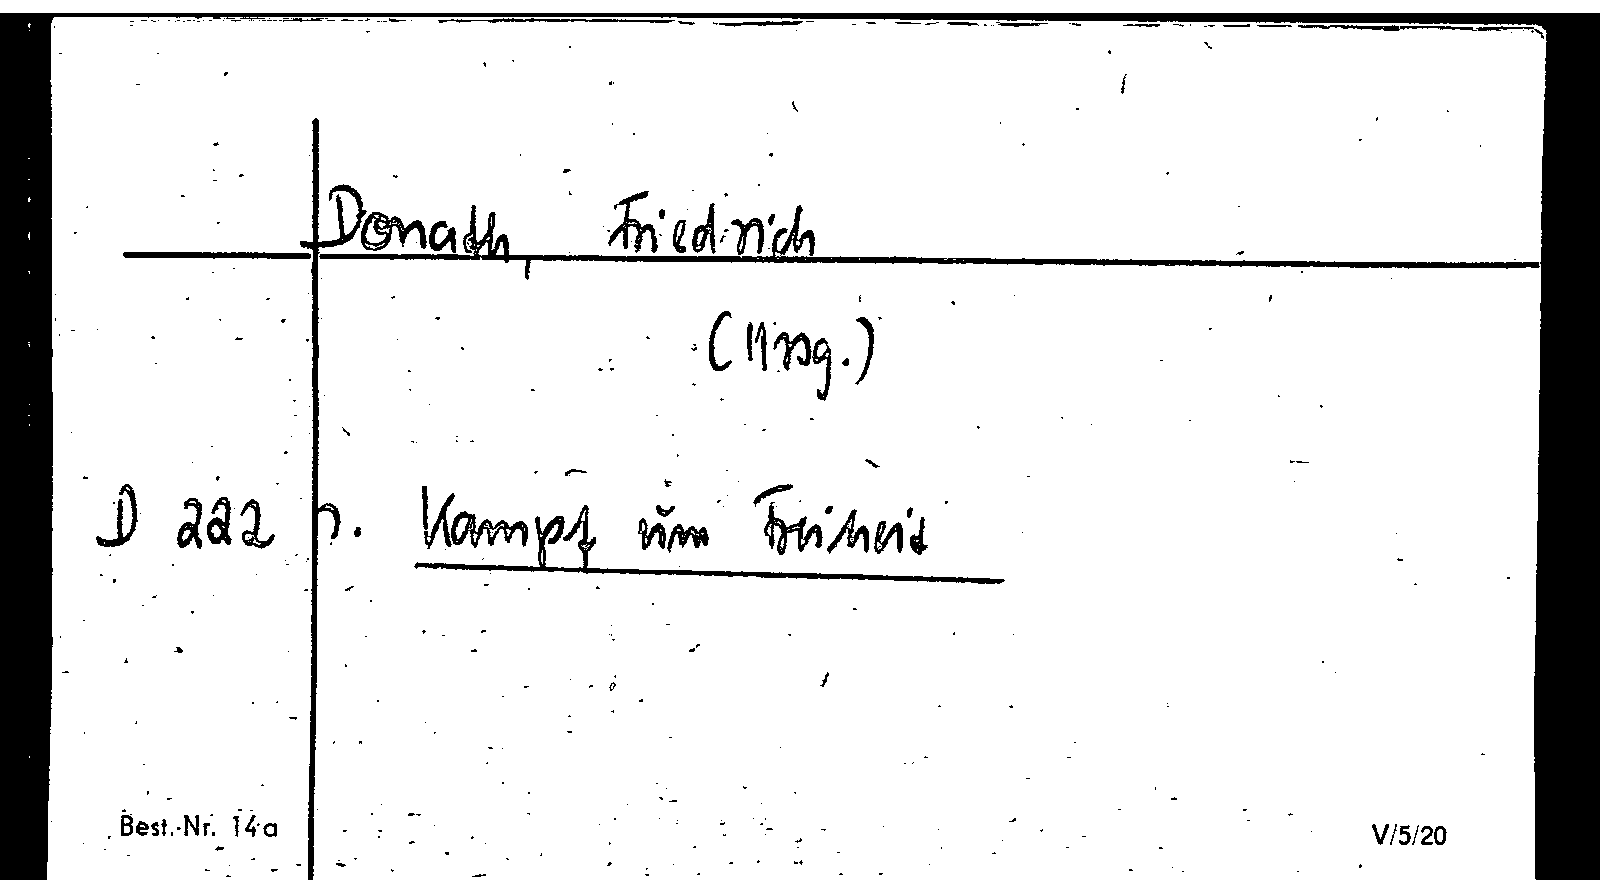 Donath, Friedrich
(Hrsg.)
D 222 s. Kampf um Freiheit
Best.-Nr. 14a
V/5/20